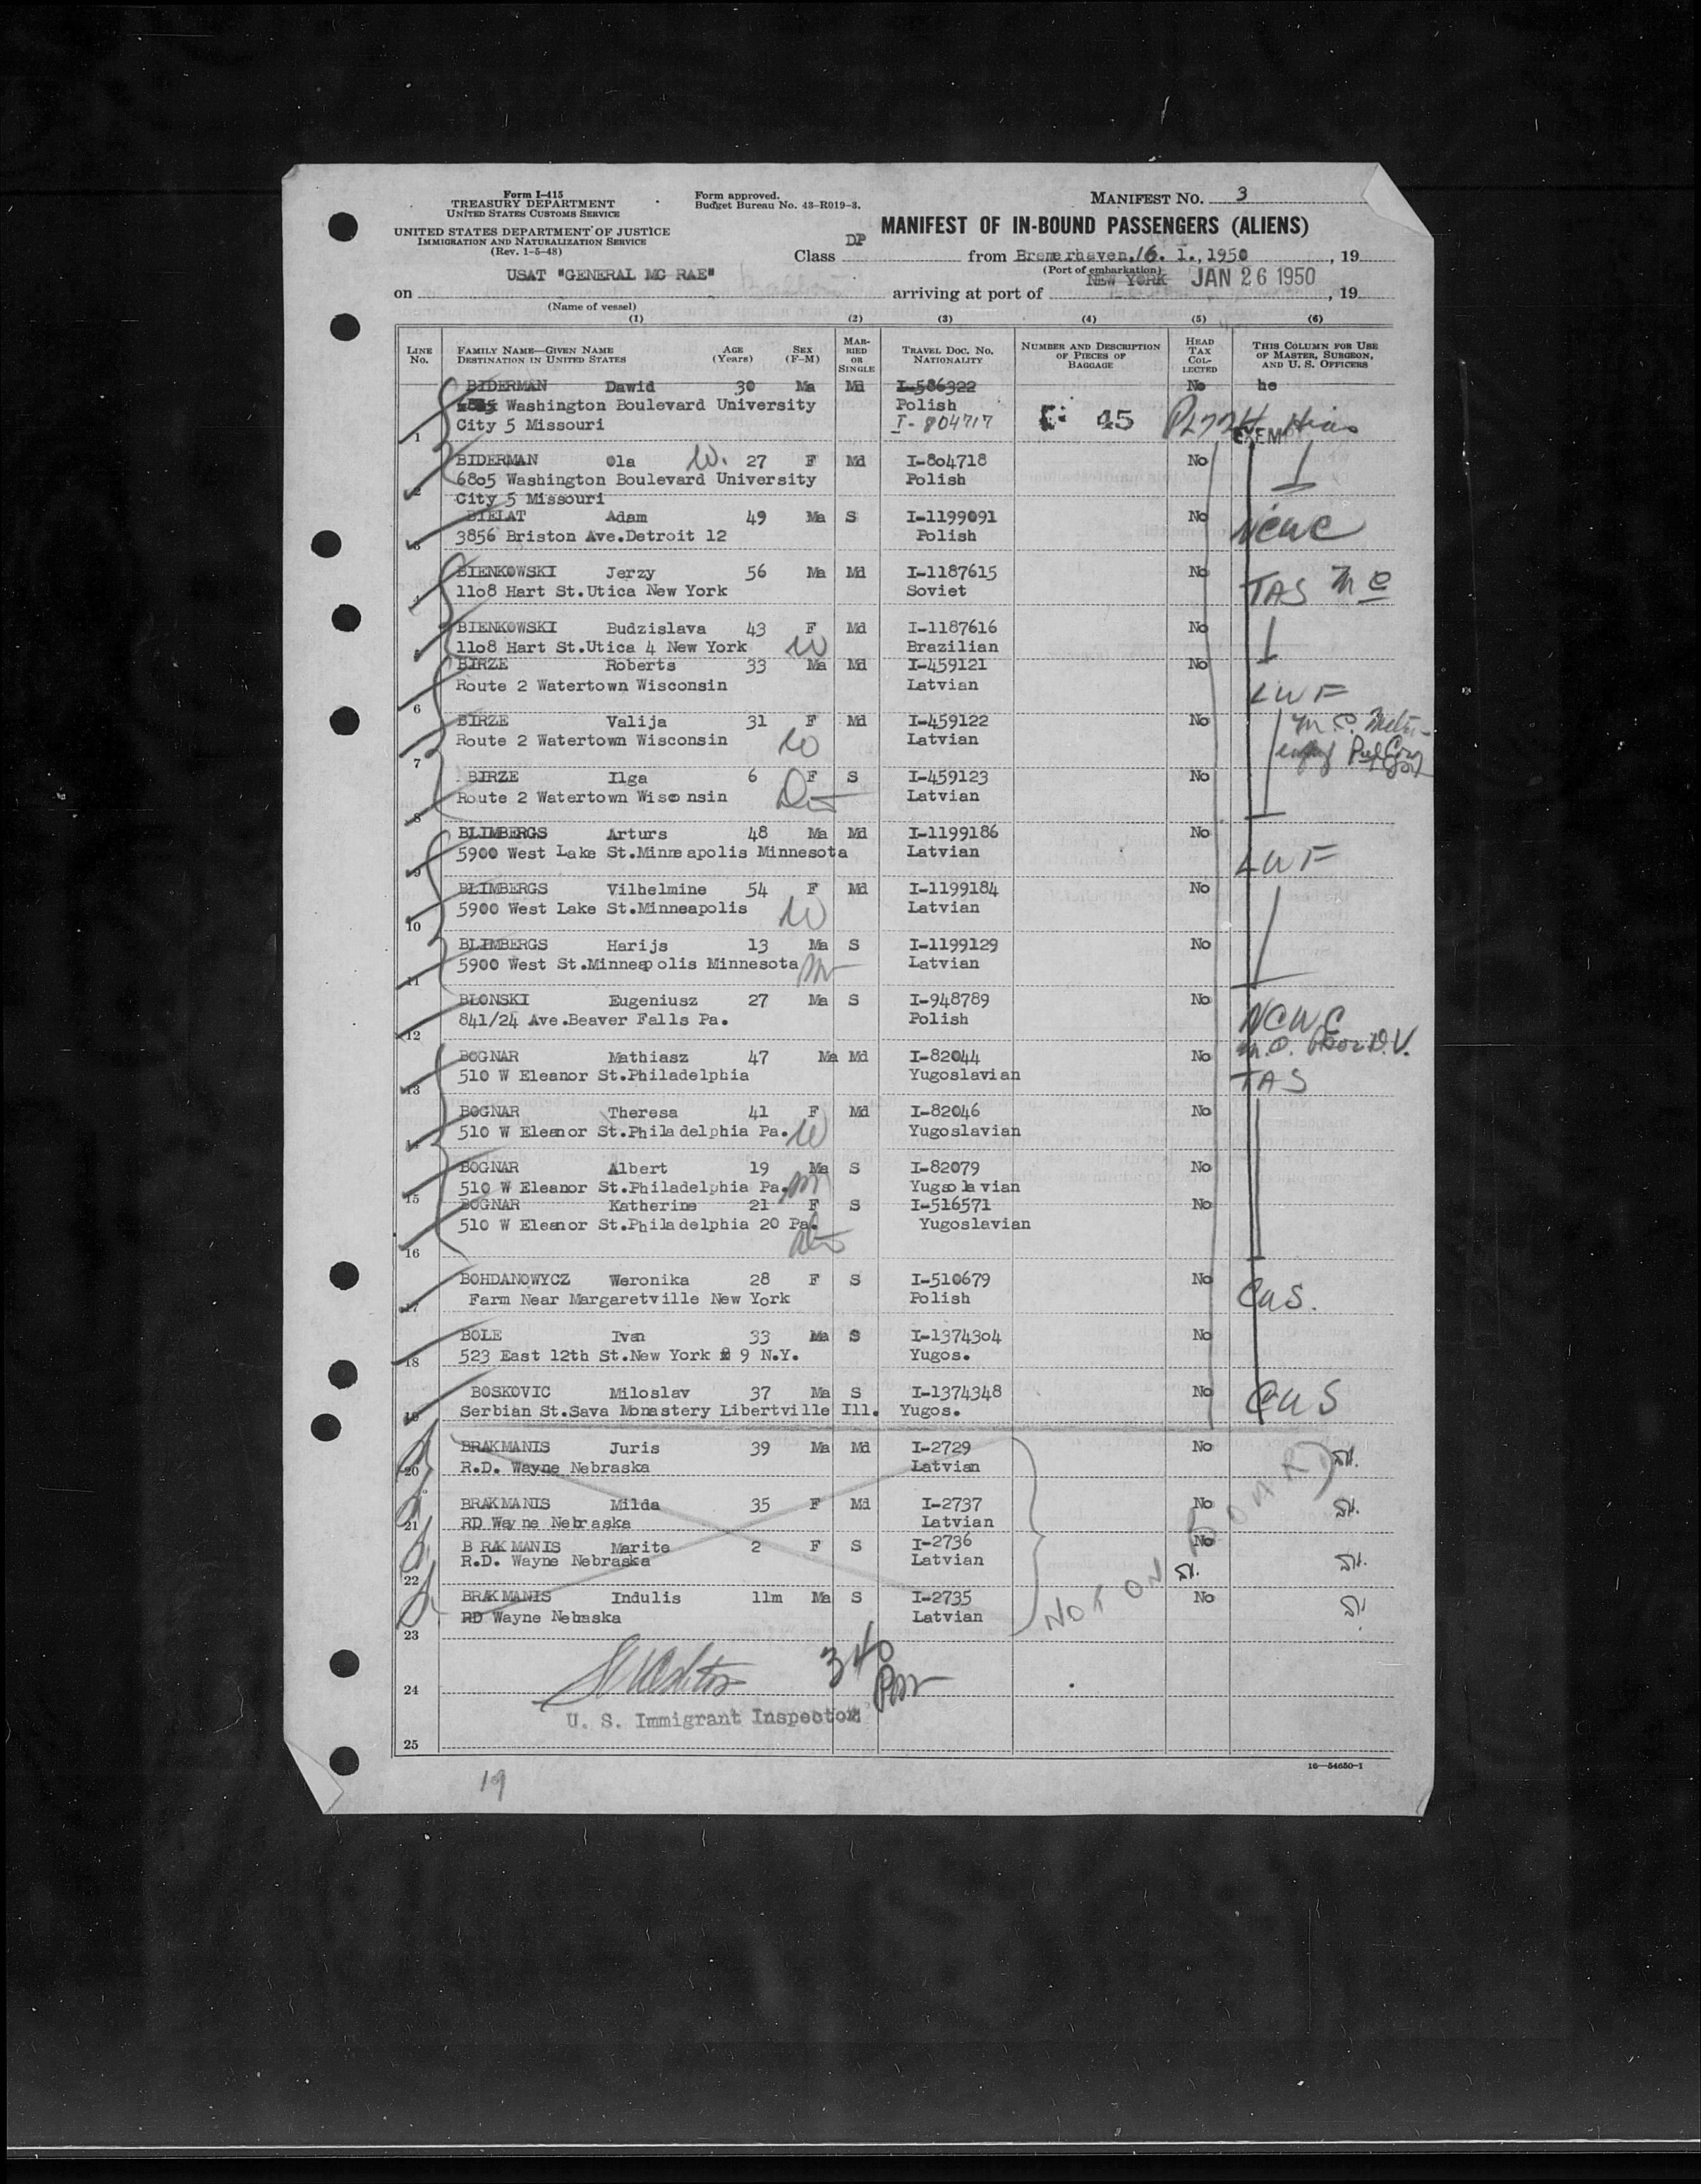 Form I-415
TREASURY DEPARTMENT
UNITED STATES CUSTOMS SERVICE
UNITED STATES DEPARTMENT OF JUSTICE
IMMIGRATION AND NATURALIZATION SERVICE
(Rev. 1-5-48)
Form approved.
Budget Bureau No. 43-R019-3.
MANIFEST NO. 3
MANIFEST OF IN-BOUND PASSENGERS (ALIENS)
Class DP from Bremerhaven, 16. 1., 1950, 19
(Port of embarkation)
on USAT "GENERAL MC RAE" arriving at port of NEW YORK JAN 26 1950, 19
(Name of vessel)
(1) (2) (3) (4) (5) (6)
LINE No. FAMILY NAME—GIVEN NAME DESTINATION IN UNITED STATES AGE (Years) SEX (F-M) MARRIED OR SINGLE TRAVEL DOC. NO. NATIONALITY NUMBER AND DESCRIPTION OF PIECES OF BAGGAGE HEAD TAX COLLECTED THIS COLUMN FOR USE OF MASTER, SURGEON, AND U. S. OFFICERS
BIDERMAN Dawid 30 Ma Md I-586322 No he
Washington Boulevard University Polish
1 City 5 Missouri I-804717 45 Hias
BIDERMAN Ola W. 27 F Md I-804718 No
6805 Washington Boulevard University Polish
2 City 5 Missouri
BIELAT Adam 49 Ma S I-1199091 No NCWC
3 3856 Briston Ave.Detroit 12 Polish
BIENKOWSKI Jerzy 56 Ma Md I-1187615 No
4 11o8 Hart St.Utica New York Soviet TAS
BIENKOWSKI Budzislava 43 F Md I-1187616 No
5 11o8 Hart St.Utica 4 New York W Brazilian
BIRZE Roberts 33 Ma Md I-459121 No
6 Route 2 Watertown Wisconsin Latvian LWF
BIRZE Valija 31 F Md I-459122 No
7 Route 2 Watertown Wisconsin W Latvian
BIRZE Ilga 6 F S I-459123 No
8 Route 2 Watertown Wisconsin Latvian
BLIMBERGS Arturs 48 Ma Md I-1199186 No
9 5900 West Lake St.Minneapolis Minnesota Latvian LWF
BLIMBERGS Vilhelmine 54 F Md I-1199184 No
10 5900 West Lake St.Minneapolis W Latvian
BLIMBERGS Harijs 13 Ma S I-1199129 No
11 5900 West St.Minneapolis Minnesota Latvian
BLONSKI Eugeniusz 27 Ma S I-948789 No
12 841/24 Ave.Beaver Falls Pa. Polish NCWC
BOGNAR Mathiasz 47 Ma Md I-82044 No
13 510 W Eleanor St.Philadelphia Yugoslavian TAS
BOGNAR Theresa 41 F Md I-82046 No
14 510 W Eleanor St.Philadelphia Pa. W Yugoslavian
BOGNAR Albert 19 Ma S I-82079 No
15 510 W Eleanor St.Philadelphia Pa. Yugsolavian
BOGNAR Katherine 21 F S I-516571 No
510 W Eleanor St.Philadelphia 20 Pa. Yugoslavian
16
BOHDANOWYCZ Weronika 28 F S I-510679 No
17 Farm Near Margaretville New York Polish CWS.
BOLE Ivan 33 Ma S I-1374304 No
18 523 East 12th St.New York 9 N.Y. Yugos.
BOSKOVIC Miloslav 37 Ma S I-1374348 No CWS
19 Serbian St.Sava Monastery Libertville Ill. Yugos.
BRAKMANIS Juris 39 Ma Md I-2729 No
20 R.D. Wayne Nebraska Latvian
BRAKMANIS Milda 35 F Md I-2737 No
21 RD Wayne Nebraska Latvian
BRAKMANIS Marite 2 F S I-2736 No
22 R.D. Wayne Nebraska Latvian
BRAKMANIS Indulis 11m Ma S I-2735 No
RD Wayne Nebraska Latvian
NOT ON BOARD
23
24
U. S. Immigrant Inspector
25
16—54650-1
19